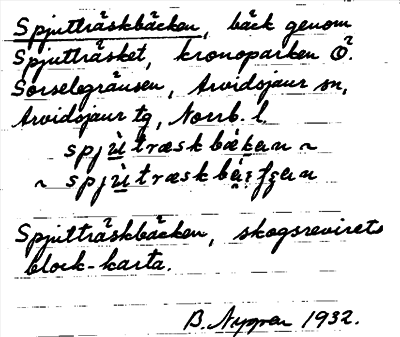 Spjutträskbäcken, bäck genom
Spjutträsket, kronoparken Ö.
Sorselegränsen, Arvidsjaur sn,
Arvidsjaur tg, Norrb. l.
spjùtræskbɛkɛn ~
~ spjùtræskbɛ́
Spjutträskbäcken, skogsrevirets
block-karta.
B. Nygren 1932.